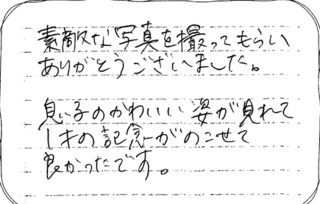 素敵な写真を撮ってもらい
ありがとうございました。
息子のかわいい姿が見れて
1才の記念がのこせて
良かったです。